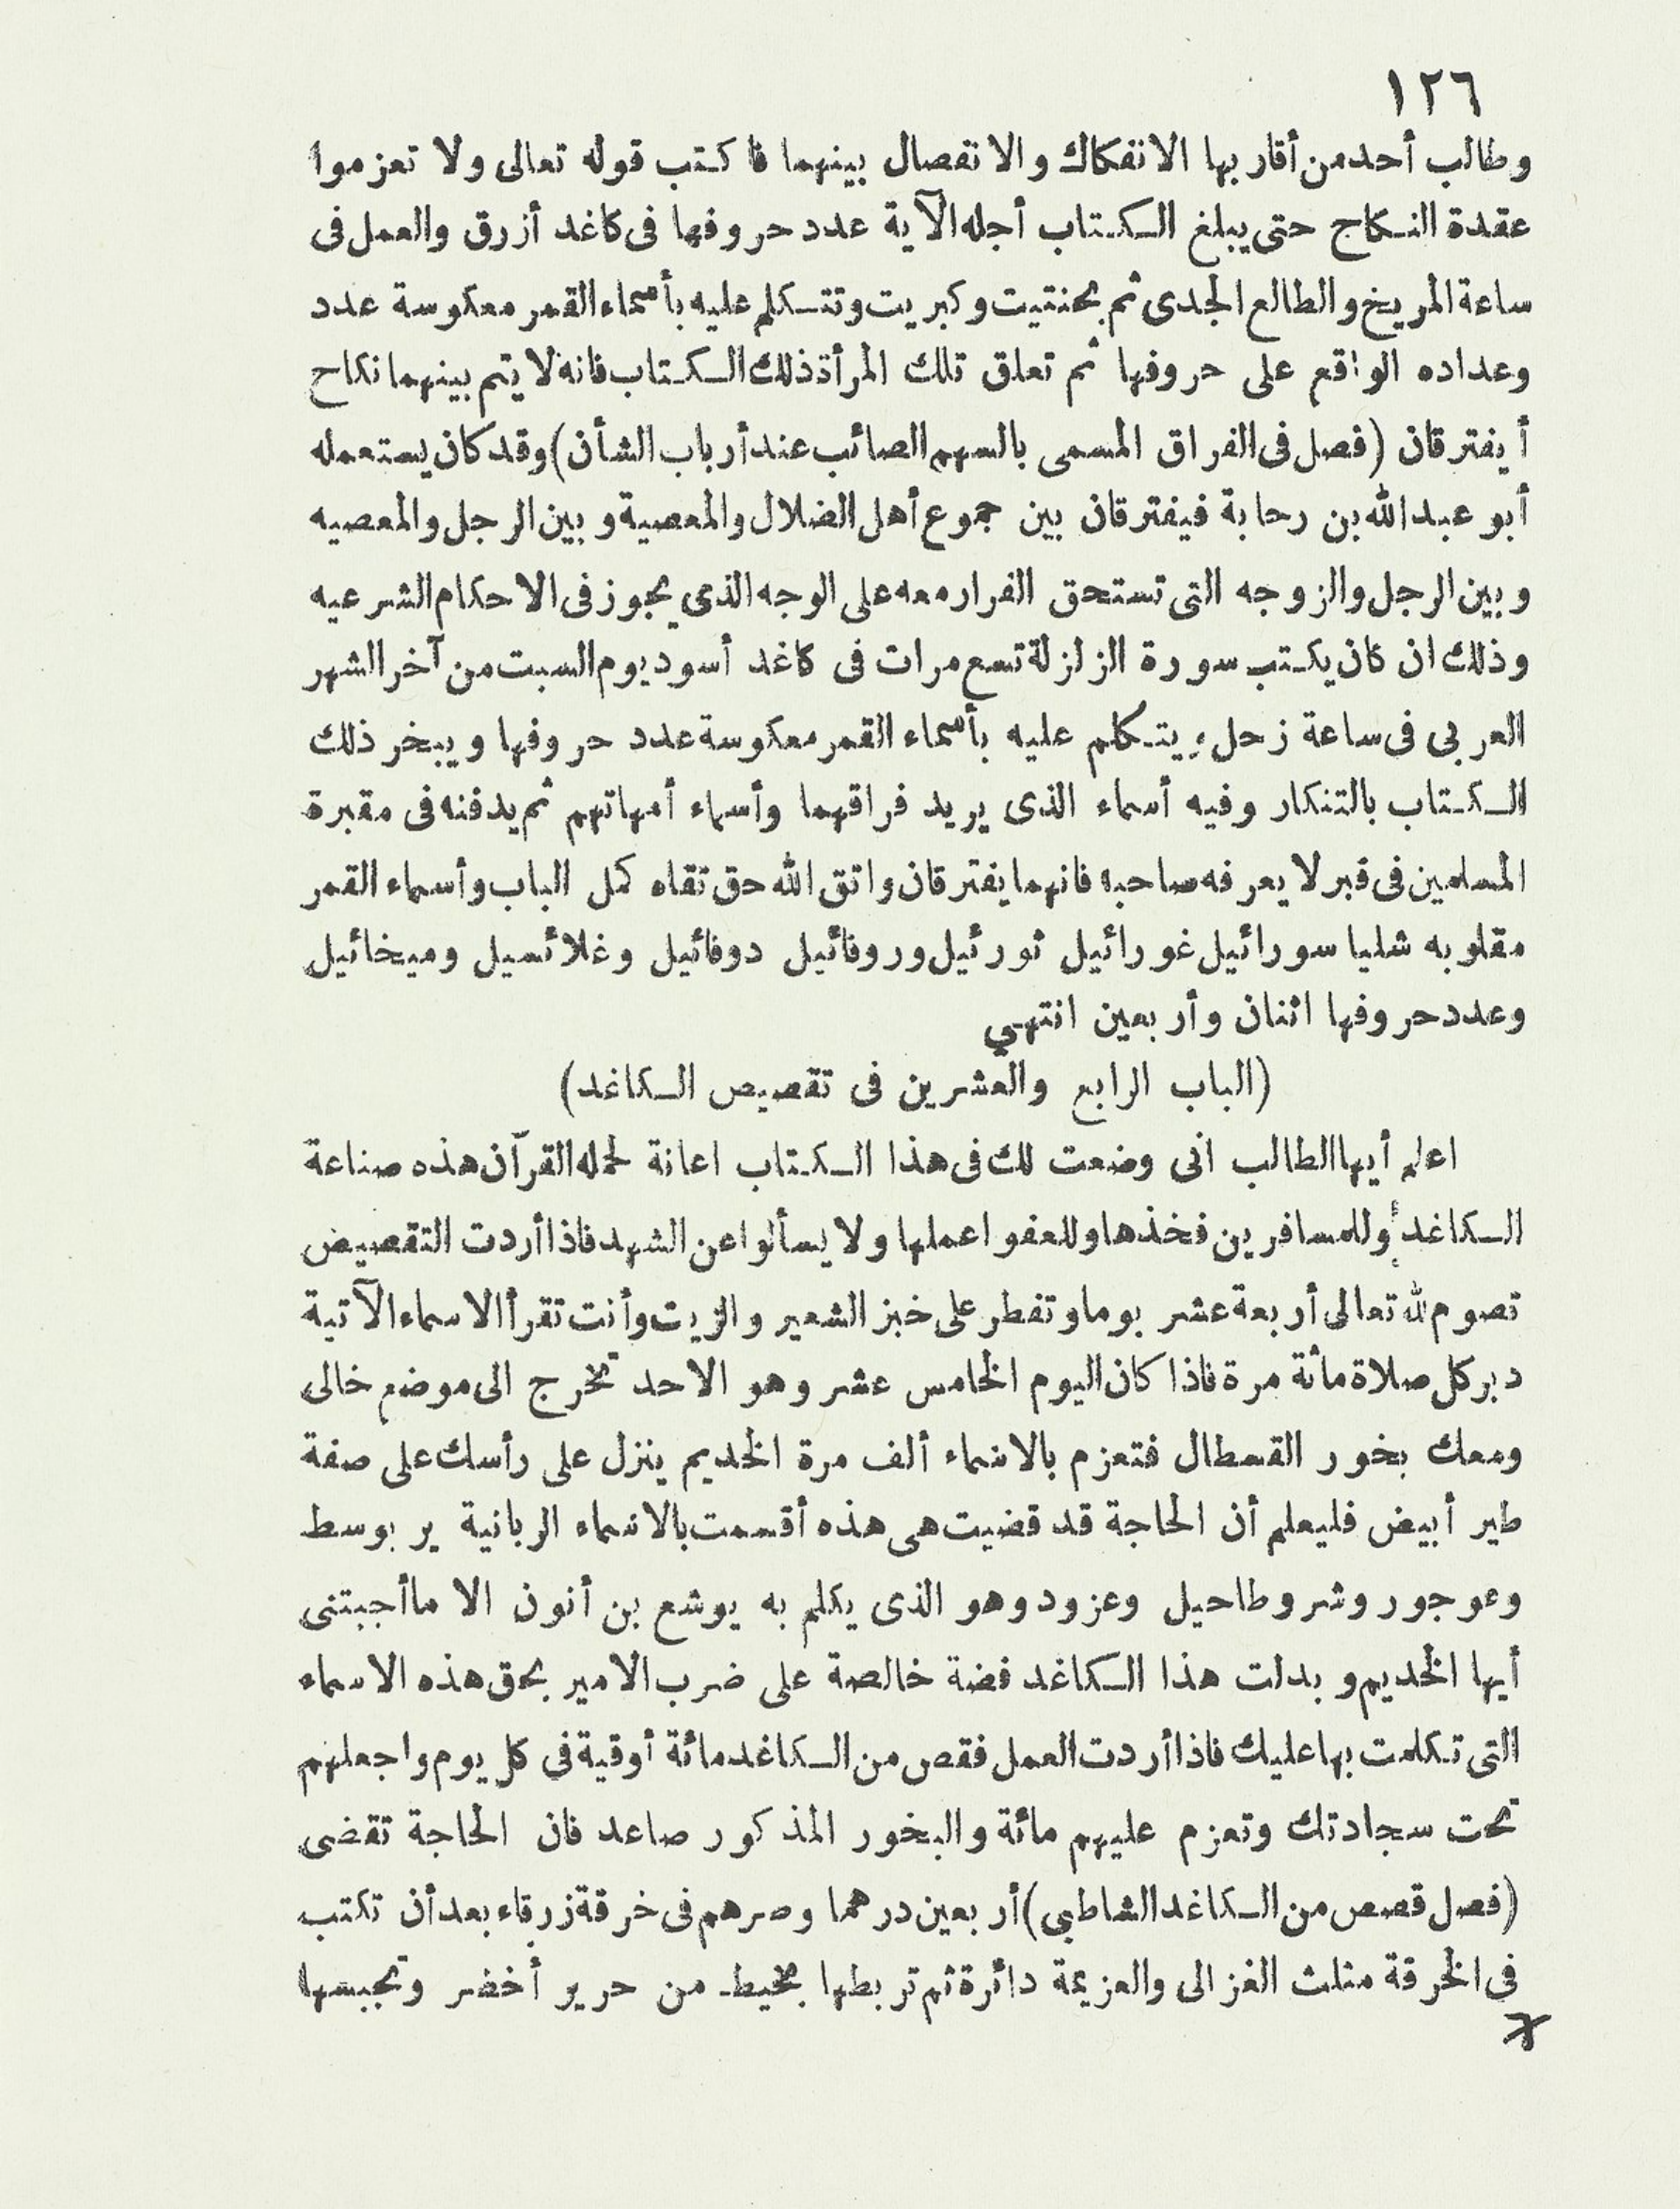 ١٢٦
وطالب أحد من أقاربها الانفكاك والانفصال بينهما فاكتب قوله تعالى ولا تعزموا
عقدة النكاح حتى يبلغ الكتاب أجله الآية عدد حروفها فى كاغد أزرق والعمل فى
ساعة المريخ والطالع الجدى ثم بحنتيت وكبريت وتتكلم عليه بأسماء القمر معكوسة عدد
وعداده الواقع على حروفها ثم تعلق تلك المرأة ذلك الكتاب فانه لا يتم بينهما نكاح
أ يفترقان (فصل فى الفراق المسمى بالسهم الصائب عند أرباب الشأن) وقد كان يستعمله
أبو عبد الله بن رحابة فيفترقان بين جموع أهل الضلال والمعصية وبين الرجل والمعصيه
وبين الرجل والزوجه التى تستحق الفرار معه على الوجه الذى يجوز فى الاحكام الشرعيه
وذلك ان كان يكتب سورة الزلزلة تسع مرات فى كاغد أسود يوم السبت من آخر الشهر
العربى فى ساعة زحل ويتكلم عليه بأسماء القمر معكوسة عدد حروفها ويبخر ذلك
الكتاب بالتنكار وفيه أسماء الذى يريد فراقهما وأسماء أمهاتهم ثم يدفنه فى مقبرة
المسلمين فى قبر لا يعرفه صاحبه فانهما يفترقان واتق الله حق تقاه كمل الباب وأسماء القمر
مقلوبه شليا سورائيل غورائيل ثورئيل وروفائيل دوفائيل وغلائسيل وميخائيل
وعدد حروفها اثنان وأربعين انتهي
(الباب الرابع والعشرين فى تقصيص الكاغد)
اعلم أيها الطالب انى وضعت لك فى هذا الكتاب اعانة لحمله القرآن هذه صناعة
الكاغد وللمسافرين فخذها وللعفو اعملها ولا يسألوا عن الشهد فاذا أردت التقصيص
تصوم لله تعالى أربعة عشر بوما وتفطر على خبز الشعير والزيت وأنت تقرأ الاسماء الآتية
دبر كل صلاة مائة مرة فاذا كان اليوم الخامس عشر وهو الاحد تخرج الى موضع خالى
ومعك بخور القسطال فتعزم بالاسماء ألف مرة الخديم ينزل على رأسك على صفة
طير أبيض فليعلم أن الحاجة قد قضيت هى هذه أقسمت بالاسماء الربانية ير بوسط
وعوجور وشروطاحيل وعزود وهو الذى يكلم به يوشع بن أنون الا ما أجبتنى
أيها الخديم وبدلت هذا الكاغد فضة خالصة على ضرب الامير بحق هذه الاسماء
التى تكلمت بها عليك فاذا أردت العمل فقص من الكاغد مائة أوقية فى كل يوم واجعلهم
تحت سجادتك وتعزم عليهم مائة والبخور المذكور صاعد فان الحاجة تقضى
(فصل قصص من الكاغد الشاطبى) أربعين درهما وصرهم فى خرقة زرقاء بعد أن تكتب
فى الخرقة مثلث الغزالى والعزيمة دائرة ثم تربطها بخيط من حرير أخضر وتحبسها